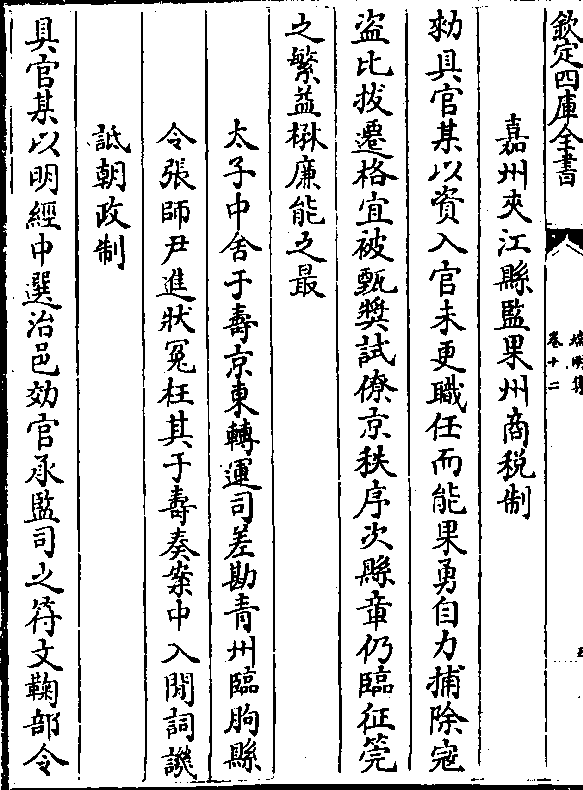 欽定四庫全書
端明集
卷十二
嘉州夾江縣監果州商稅制
勑具官某以資入官未更職任而能果勇自力捕除寇
盜比拔遷格宜被甄奬試僚京秩序次縣章仍臨征筦
之繁益楙廉能之最
太子中舍于壽京東轉運司差勘青州臨朐縣
令張師尹進狀冤枉其于壽奏案中入閒詞譏
詆朝政制
具官某以明經中選治邑効官承監司之符文鞠部令